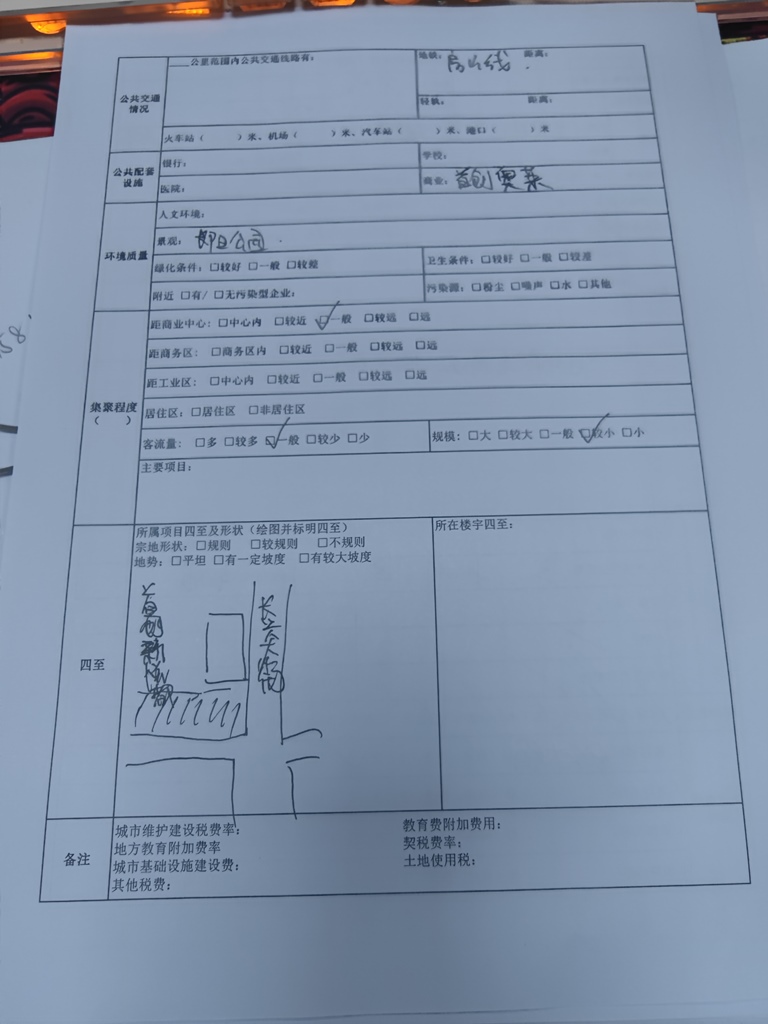 公共交通情况
____公里范围内公共交通线路有:
地铁: 房山线. 距离:
轻轨: 距离:
火车站( )米、机场( )米、汽车站( )米、港口( )米
公共配套设施
银行: 学校:
医院: 商业: 首创奥莱
环境质量
人文环境:
景观: 公园.
绿化条件: □较好 □一般 □较差 卫生条件: □较好 □一般 □较差
附近 □有/ □无污染型企业: 污染源: □粉尘 □噪声 □水 □其他
集聚程度
( )
距商业中心: □中心内 □较近 ☑一般 □较远 □远
距商务区: □商务区内 □较近 □一般 □较远 □远
距工业区: □中心内 □较近 □一般 □较远 □远
居住区: □居住区 □非居住区
客流量: □多 □较多 ☑一般 □较少 □少 规模: □大 □较大 □一般 ☑较小 □小
主要项目:
四至
所属项目四至及形状(绘图并标明四至) 所在楼宇四至:
宗地形状: □规则 □较规则 □不规则
地势: □平坦 □有一定坡度 □有较大坡度
首创新
长大街
备注
城市维护建设税费率: 教育费附加费用:
地方教育附加费率 契税费率:
城市基础设施建设费: 土地使用税:
其他税费:
58.